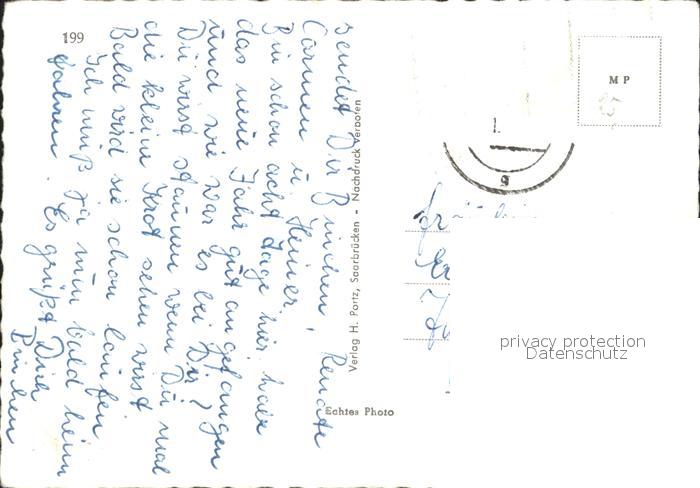 199
sendet Dir Binchen, Renate
Carmen u. Heiner.
Bin schon acht Tage hier. habe
das neue Jahr gut angefangen
und wie war es bei Dir?
Du wirst staunen wenn Du mal
die kleine Krot sehen wirst
Bald wird sie schon laufen
Ich muß ja nun bald heim
fahren. Es grüßt Dich
Verlag H. Portz, Saarbrücken - Nachdruck verboten
Echtes Photo
M P
g
privacy protection
Datenschutz